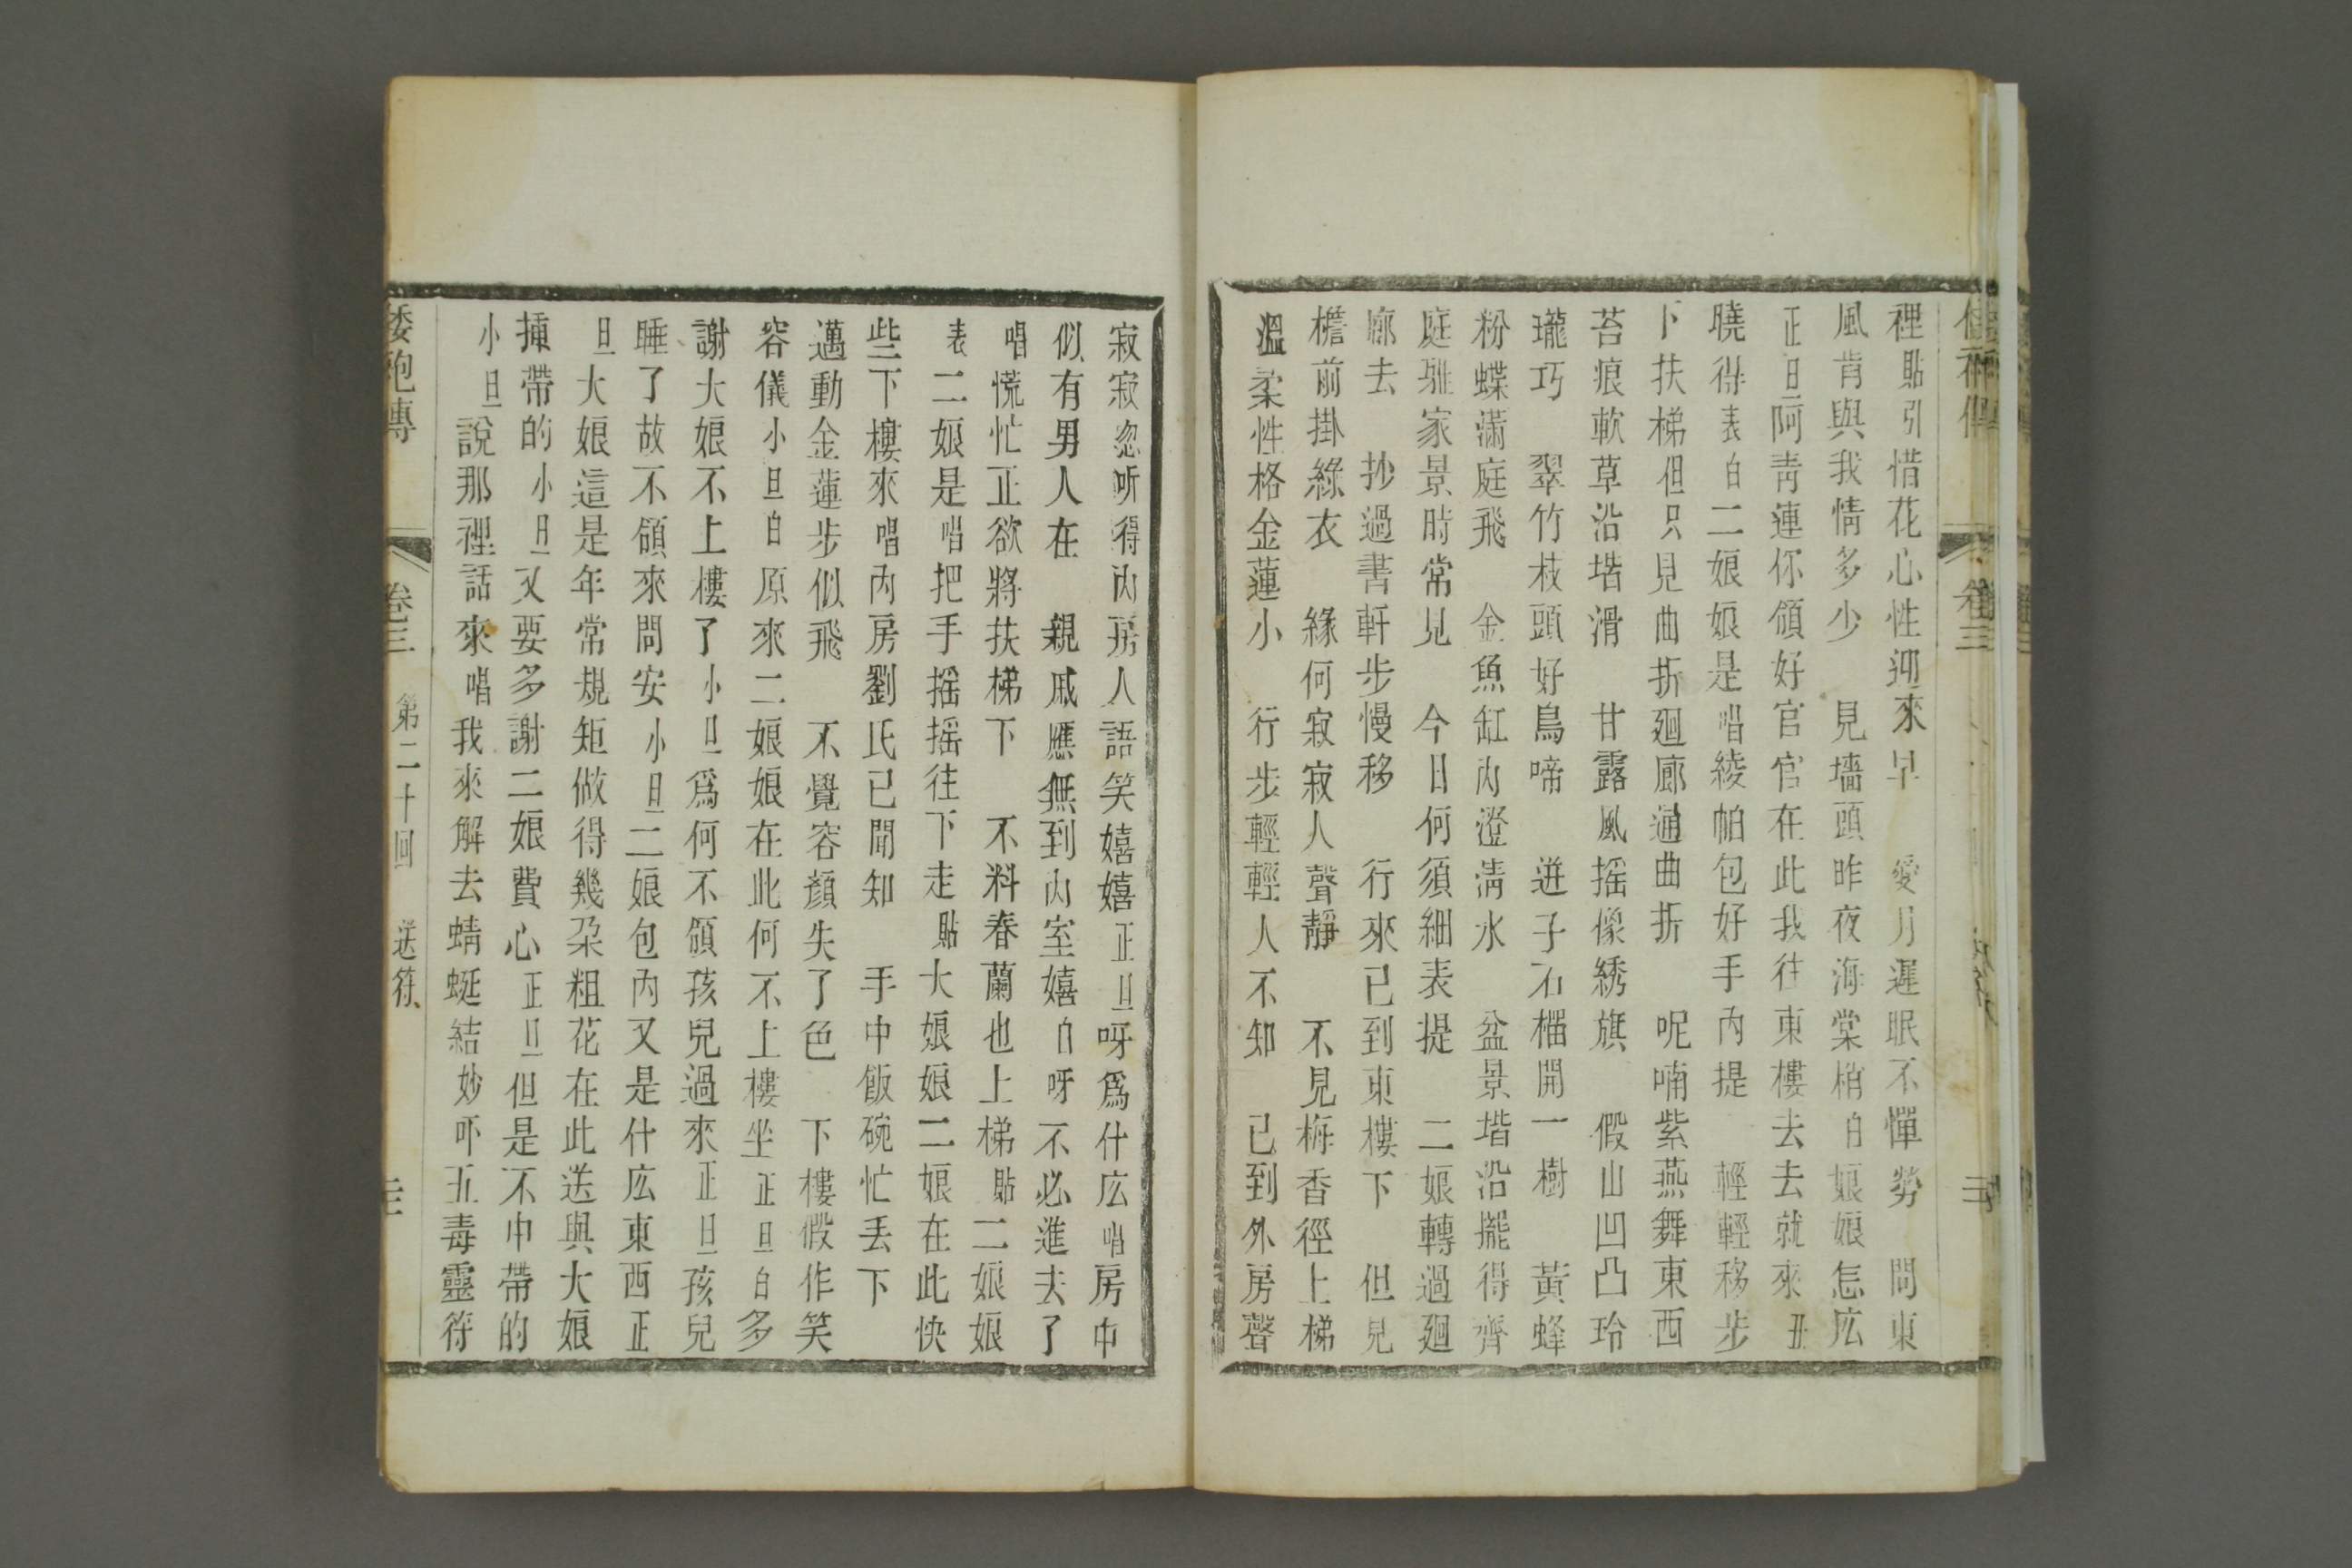 裡貼引惜花心性迎來早 愛月遲眠不憚勞 問東
風肯與我情多少 見墻頭昨夜海棠梢白娘娘怎庅
正旦阿靑連你領好官官在此我往東樓去去就來丑
曉得表白二娘娘是唱綾帕包好手內提 輕輕移步
下扶梯但只見曲折廻廊通曲折 呢喃紫燕舞東西
苔痕軟草沿堦滑 甘露風搖像綉旗 假山凹凸玲
瓏巧 翠竹枝頭好鳥啼 迸子石榴開一樹 黃蜂
粉蝶滿庭飛 金魚缸內澄淸水 盆景堦沿擺得齊
庭雖家景時常見 今日何須細表提 二娘轉過廻
廊去 抄過書軒步慢移 行來已到東樓下 但見
檐前掛綠衣 緣何寂寂人聲靜 不見梅香徑上梯
溫柔性格金蓮小 行步輕輕人不知 已到外房聲
寂寂忽听得內房人語笑嬉嬉正旦呀爲什庅唱房中
似有男人在 親戚應無到內室嬉白呀不必進去了
唱慌忙正欲將扶梯下 不料春蘭也上梯貼二娘娘
表二娘是唱把手搖搖往下走貼大娘娘二娘在此快
些下樓來唱內房劉氏已聞知 手中飯碗忙丢下
邁動金蓮步似飛 不覺容顏失了色 下樓假作笑
容儀小旦白原來二娘娘在此何不上樓坐正旦白多
謝大娘不上樓了小旦爲何不領孩兒過來正旦孩兒
睡了故不領來問安小旦二娘包內又是什庅東西正
旦大娘這是年常規矩做得幾朶粗花在此送與大娘
揷帶的小旦又要多謝二娘費心正旦但是不中帶的
小旦說那裡話來唱我來解去蜻蜒結妙吓五毒靈符
倭袍傳 卷三 第二十回 送符